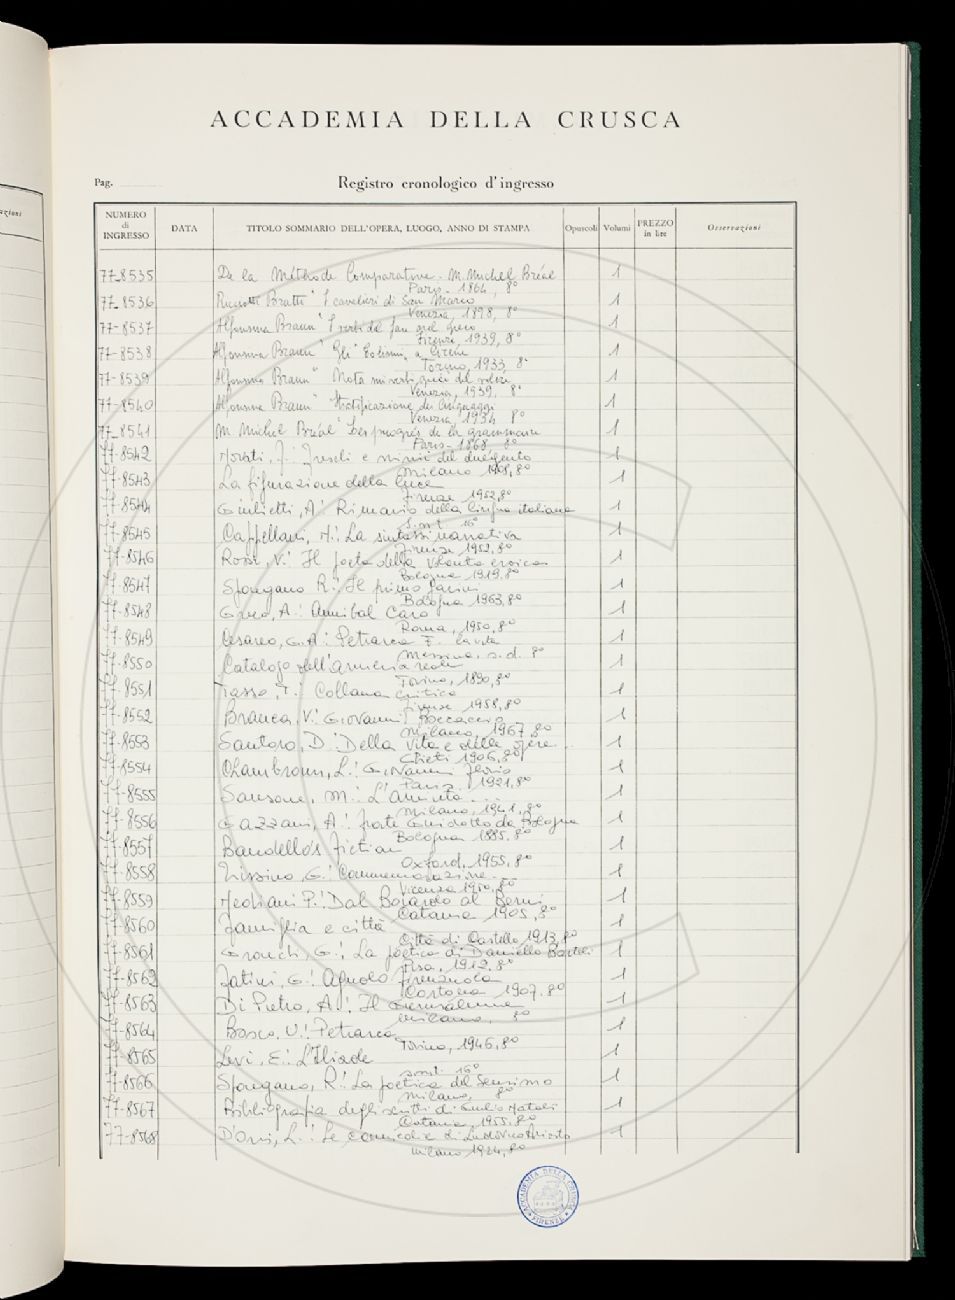 azioni
ACCADEMIA DELLA CRUSCA
Pag.
Registro cronologico d'ingresso
NUMERO di INGRESSO DATA TITOLO SOMMARIO DELL'OPERA, LUOGO, ANNO DI STAMPA Opuscoli Volumi PREZZO in lire Osservazioni
77-8535 De la Méthode Comparative. M. Michel Bréal 1
Paris. 1864, 8°
77-8536 Bratti "I cavalieri di San Marco 1
Venezia, 1898, 8°
77-8537 Alfonsina Braun "I verbi del fare nel greco 1
Firenze, 1939, 8°
77-8538 Alfonsina Braun "Gli "Eolismi" a Cirene 1
Torino, 1933, 8°
77-8539 Alfonsina Braun "Nota sui verbi greci del volere 1
Venezia, 1939, 8°
77-8540 Alfonsina Braun "Stratificazione dei linguaggi 1
Venezia 1934 8°
77-8541 M. Michel Bréal "Les progrès de la grammaire 1
Paris- 1868, 8°
77-8542 e del duecento 1
Milano 1908, 8°
77-8543 La figurazione della luce 1
Firenze 1952, 8°
77-8544 Giulietti, A.: Rimario della lingua italiana 1
s.n.t. 16°
77-8545 Cappellani, N.: La sintassi narrativa 1
Firenze 1952, 8°
77-8546 Rossi, V.: Il poeta della volontà eroica 1
Bologna 1919. 8°
77-8547 Spongano R.: Il primo 1
Bologna 1963, 8°
77-8548 Greco, A.: Annibal Caro 1
Roma, 1950, 8°
77-8549 Cesareo, G.A.: Petrarca F. la vita 1
Messina, s.d. 8°
77-8550 Catalogo dell'armeria reale 1
Torino, 1890, 8°
77-8551 Tasso, T.: Collana critica 1
Firenze 1958, 8°
77-8552 Branca, V.: Giovanni Boccaccio 1
Milano, 1967, 8°
77-8553 Santoro, D.: Della vita e delle opere.. 1
Chieti 1906, 8°
77-8554 Chambrun, L.: Giovanni Florio 1
Paris. 1921, 8°
77-8555 Sansone, M.: L'Aminta ... 1
Milano, 1941. 8°
77-8556 Gazzani, A.: frate Guidotto da Bologna 1
Bologna 1885, 8°
77-8557 Bandello's fiction 1
Oxford, 1955, 8°
77-8558 Trissino, G.: Commemorazione.. 1
Vicenza 1950, 8°
77-8559 P.: Dal Boiardo al Berni 1
Catania 1905, 8°
77-8560 Famiglia e città 1
Città di Castello 1913, 8°
77-8561 G.: La poetica di Daniello Bartoli 1
Pisa, 1912. 8°
77-8562 Fatini, G.: Agnolo Firenzuola 1
Cortona 1907. 8°
77-8563 Di Pietro, A.: Il Gerusalemme 1
Milano, 8°
77-8564 Bosco, U.: Petrarca 1
Torino, 1946, 8°
77-8565 Levi, E.: L'Iliade 1
s.n.t. 16°
77-8566 Spongano, R.: La poetica del Sensismo 1
Milano, 8°
77-8567 Bibliografia degli scritti di Giulio Natali 1
Catania, 1955. 8°
77-8568 D'Orsi, L.: Le commedie di Ludovico Ariosto 1
Milano 1924, 8°
ACCADEMIA DELLA CRUSCA FIRENZE